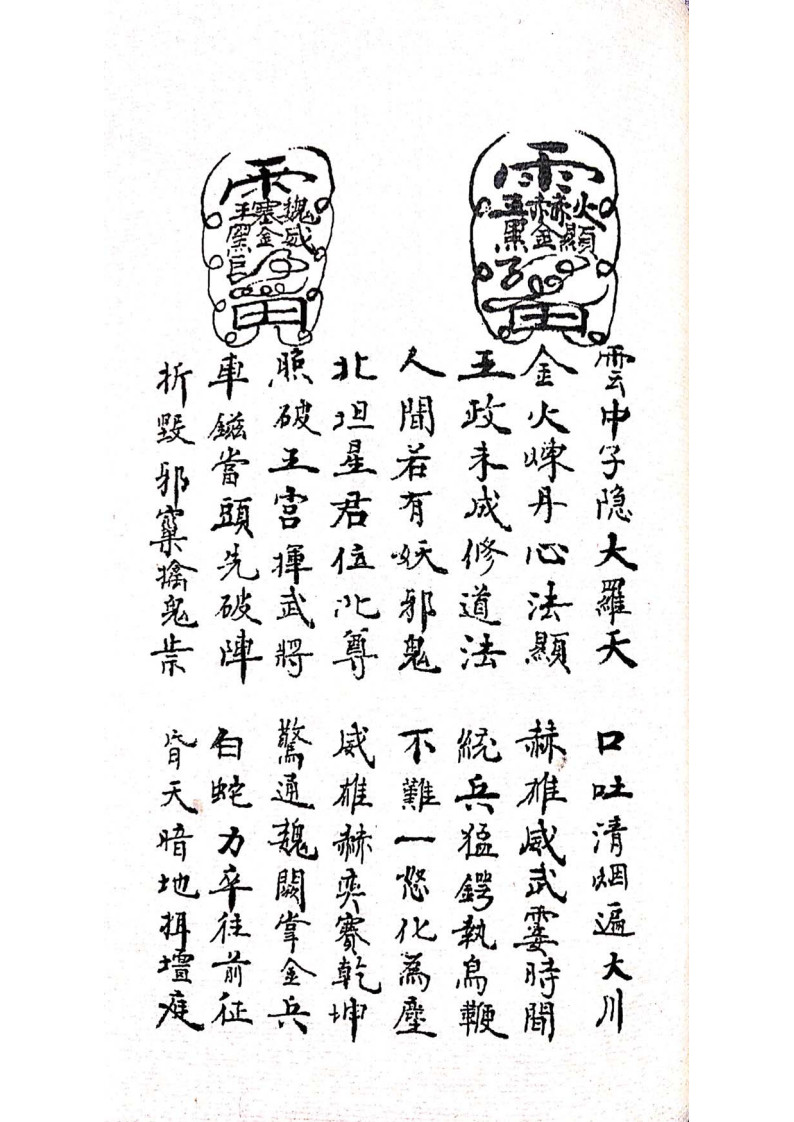 火 赫 顯 金
魏 威 塞 金
雲中子隐大羅天 口吐清烟遍大川
金火煉丹心法顯 赫雄威武霎時間
王政未成修道法 統兵猛鍔執鳥鞭
人間若有妖邪鬼 不難一怒化為塵
北坦星君位北尊 威雄赫奕賽乾坤
照破王宮揮武將 驚通魏闕掌金兵
車鎡當頭先破陣 白蛇力卒往前征
折毀邪窠擒鬼祟 昏天暗地拜壇庭